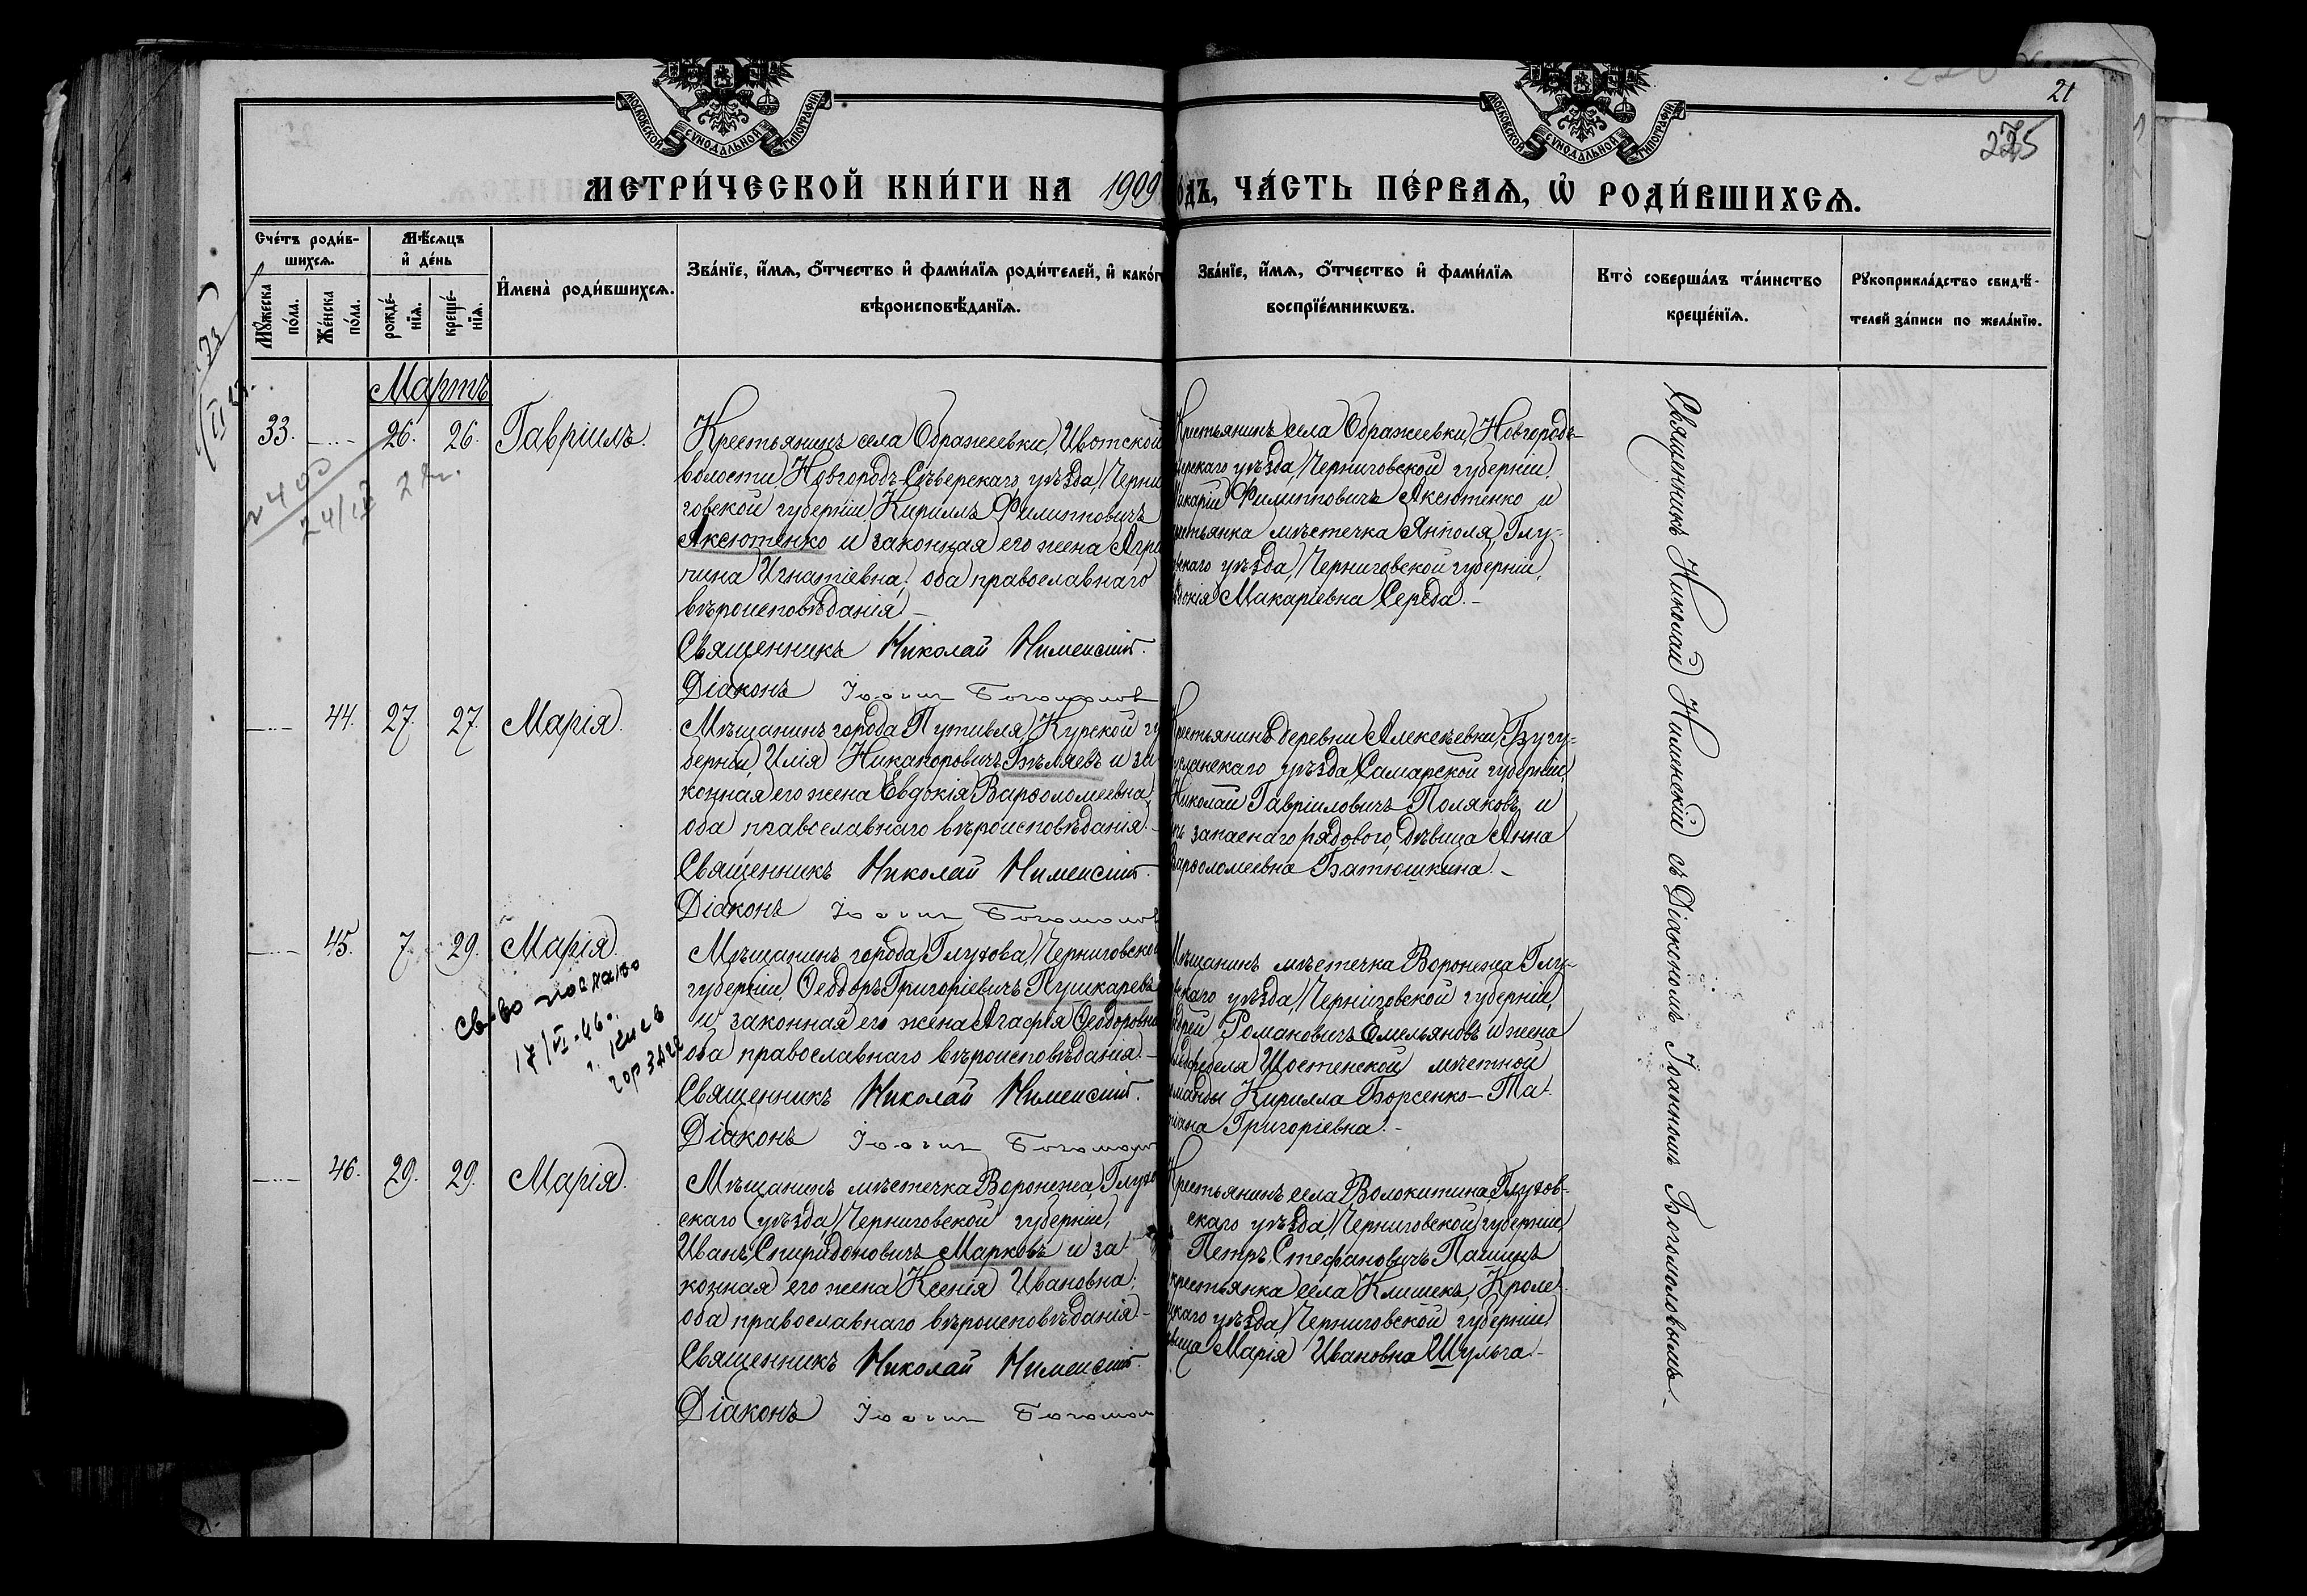 МОСКОВСКОЙ СѴНОДАЛЬНОЙ ТИПОГРАФІИ
МОСКОВСКОЙ СѴНОДАЛЬНОЙ ТИПОГРАФІИ
21
275
МЕТРИ́ЧЕСКОЙ КНИ́ГИ НА 1909
ОДЪ, ЧА́СТЬ ПЕ́РВАЯ, Ѡ РОДИ́ВШИХСЯ.
Сче́тъ роди́в-
шихся.
Мѣ́сяцъ
и де́нь
Му́жеска по́ла.
Же́нска по́ла.
рожде́-нїя.
креще́-нїя.
И҆мена̀ роди́вшихся.
Зва́нїе, и҆́мя, ѻ҆́тчество и҆ фами́лїя роди́телей, и҆ како́г
вѣроисповѣ́данїя.
Зва́нїе, и҆́мя, ѻ҆́тчество и҆ фами́лїя
воспрїе́мникωвъ.
Кто̀ соверша́лъ та́инство
креще́нїя.
Рꙋкоприкла́дство свидѣ́-
телей за́писи по жела́нїю.
Мартъ
33. 26. 26. Гавріилъ.
Крестьянинъ села Ображеевки, Ивотской
волости, Новгородъ-Сѣверскаго уѣзда, Черни
говской губерніи, Кириллъ Филипповичъ
Аксютенко и законная его жена Агри
пина Игнатіевна, оба православнаго
вѣроисповѣданія.
Священникъ Николай Нименскій.
Діаконъ Іоаннъ Богомолов
Крестьянинъ села Ображеевки, Новгородъ-
верскаго уѣзда, Черниговской губерніи,
Макарій Филипповичъ Аксютенко и
естьянка мѣстечка Янполя, Глу-
скаго уѣзда, Черниговской губерніи,
докія Макаріевна Середа.
24/IX 27г.
44. 27. 27. Марія.
Мѣщанинъ города Путивля, Курской гу
берніи, Илія Никаноровичъ Бѣляевъ и за
конная его жена Евдокія Варѳоломеевна,
оба православнаго вѣроисповѣданія.
Священникъ Николай Нименскій.
Діаконъ Іоаннъ Богомолов
Крестьянинъ деревни Алексѣевки, Бугу-
русланскаго уѣзда, Самарской губерніи,
Николай Гавріиловичъ Поляковъ и
чь запаснаго рядового, дѣвица Анна
Варѳоломеевна Батюшкина.
45. 7. 29. Марія.
св-во послано
17/VI-46г.
г. Киев
гор ЗАГС
Мѣщанинъ города Глухова, Черниговской
губерніи, Ѳеодоръ Григоріевичъ Пушкаревъ
и законная его жена Агафія Ѳеодоровна,
оба православнаго вѣроисповѣданія.
Священникъ Николай Нименскій.
Діаконъ Іоаннъ Богомоло
Мѣщанинъ мѣстечка Воронежа, Глу-
скаго уѣзда, Черниговской губерніи,
дрей Романовичъ Емельяновъ и жена
льдфебеля Шостенской мѣстной
манды Кирилла Борсенко – Та-
тіана Григоріевна.
46. 29. 29. Марія.
Мѣщанинъ мѣстечка Воронежа, Глухо
скаго уѣзда, Черниговской губерніи,
Иванъ Спиридоновичъ Марковъ и за-
конная его жена Ксенія Ивановна;
оба православнаго вѣроисповѣданія.
Священникъ Николай Нименскій.
Діаконъ Іоаннъ Богомол
Крестьянинъ села Волокитина, Глухов-
скаго уѣзда, Черниговской губерніи,
Петръ Стефановичъ Пашинъ
крестьянка села Клишекъ, Кроле-
цкаго уѣзда, Черниговской губерніи,
вица Марія Ивановна Шульга.
Священникъ Николай Нименскій съ Діакономъ Іоанномъ Богомоловымъ.